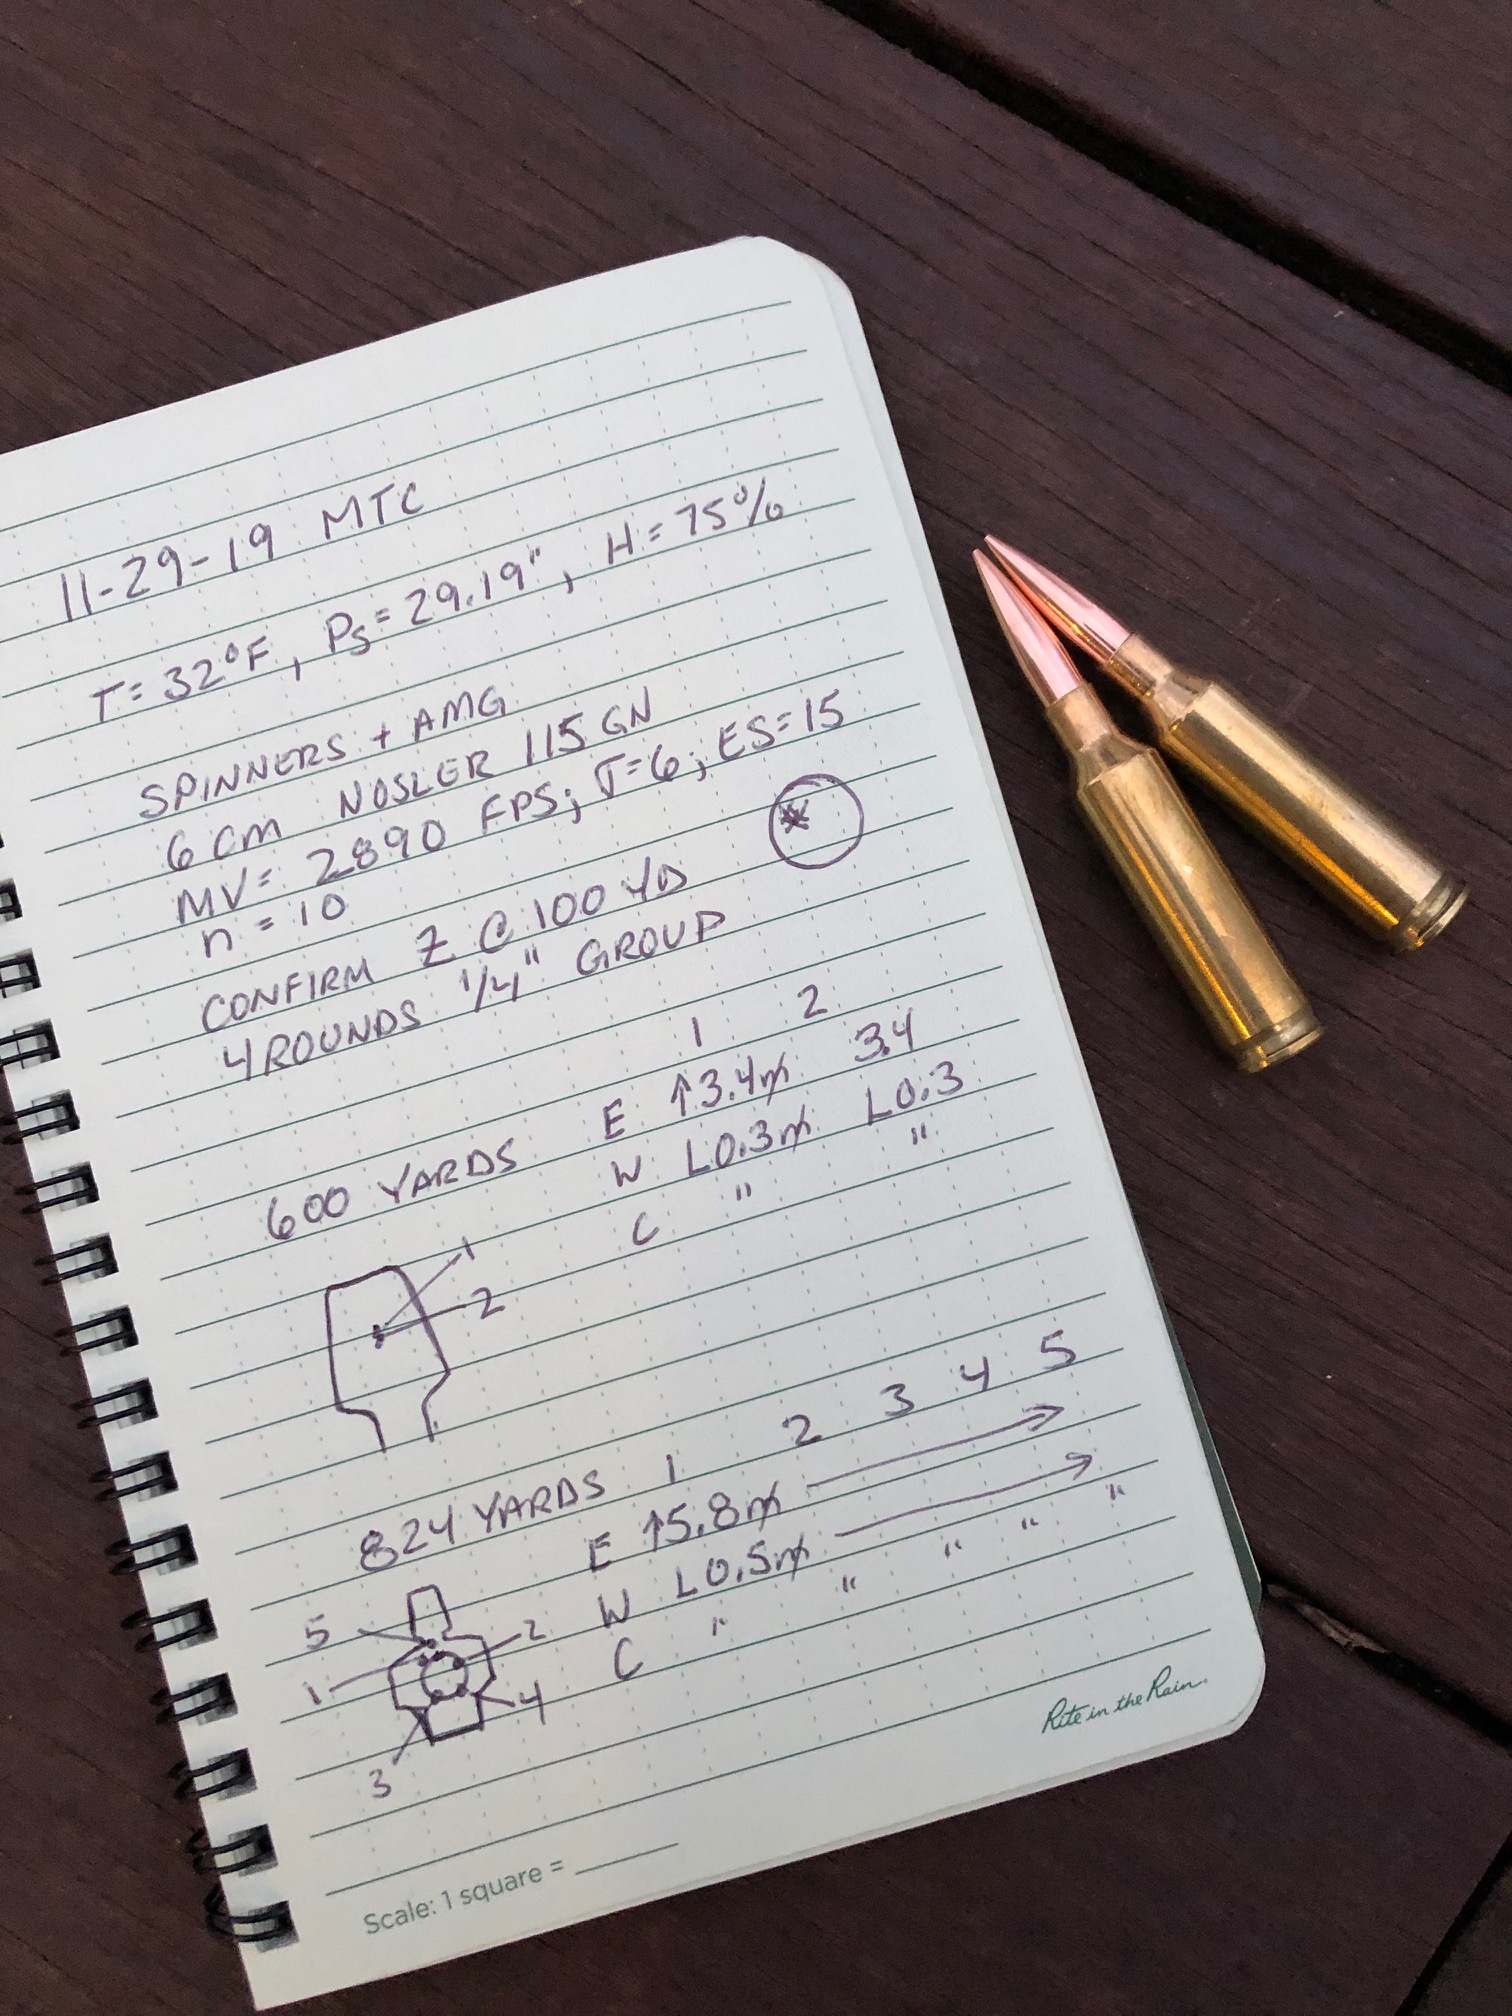 11-29-19 MTC
T= 32°F, Ps= 29.19", H= 75%
SPINNERS + AMG
6 CM NOSLER 115 GN
MV= 2890 FPS; σ=6; ES=15
n = 10
CONFIRM Z @ 100 YD
4 ROUNDS 1/4" GROUP
1 2
600 YARDS E ↑3.4m 3.4
W L0.3m L0.3
C " "
1
2
824 YARDS 1 2 3 4 5
E ↑5.8m →
W L0.5m →
C " " " " "
5
2
1
4
3
Rite in the Rain
Scale: 1 square = ____